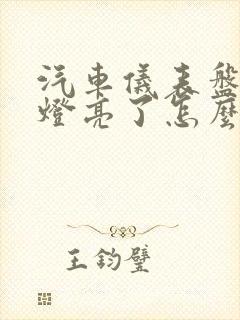 汽車儀表盤
燈亮了怎麼
王鈞璧